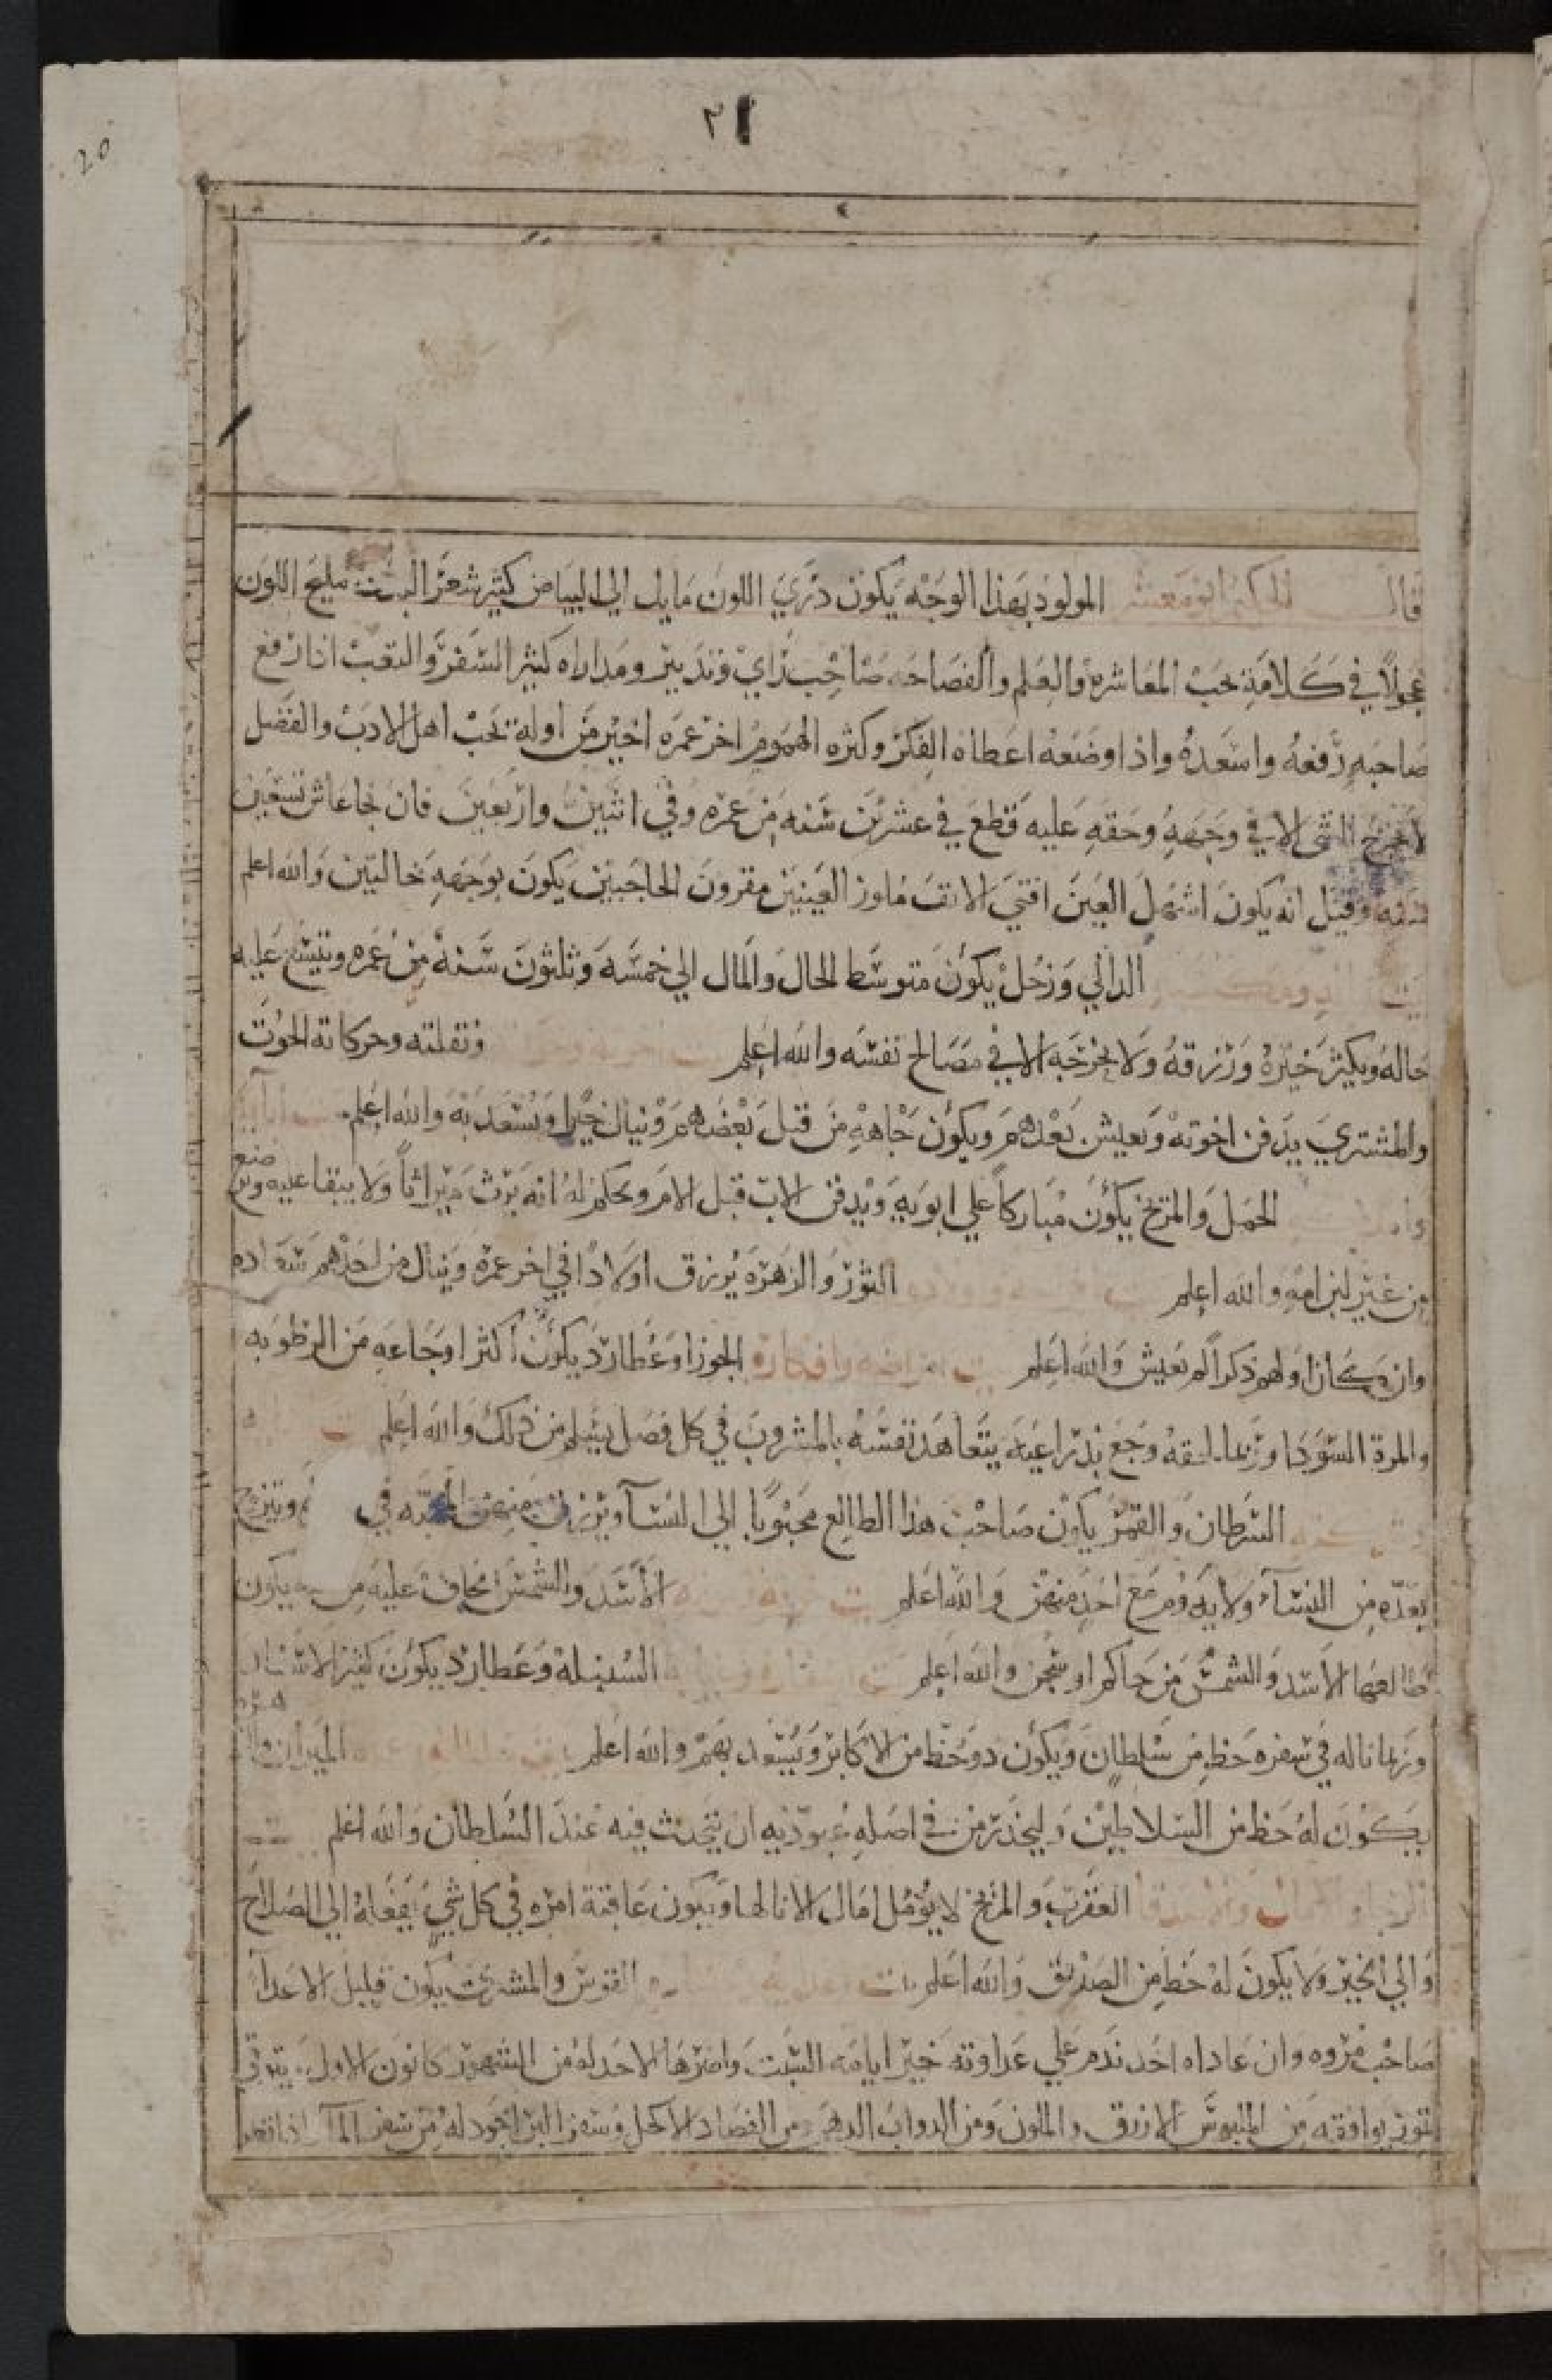 ٢١
20
قال الحكيم ابو معشر المولود بهذا الوجه يكون دري اللون مايل الي البياض كثير شعر البدن مليح اللون
عجولاً في كلامه يحب المعاشره والعلم والفصاحه صاحب راي وتدبير ومداراه كثير السفر والتعب اذا رفع
صاحبه رفعه واسعده واذا وضعه اعطاه الفكر وكثره الهموم اخر عمره اخير من اوله يحب اهل الادب والفضل
لا يخرج الشي الا في وجهه وحقه عليه قطع في عشرين سنه من عمره وفي اثنين واربعين فان نجا عاش تسعين
سنه وقيل انه يكون اشهل العين اقني الانف ماوز العينين مقرون الحاجبين يكون بوجهه خالتين والله اعلم
بيت الدالي وزحل يكون متوسط الحال والمال الي خمسه وثلثون سنه من عمره ويتسع عليه
حاله ويكثر خيره ورزقه ولا يخرجه الا في مصالح نفسه والله اعلم بيت اخوته ونقلته وحركاته الحوت
والمشتري يدفن اخوته ويعيش بعدهم ويكون جاهه من قبل بعضهم وينال خيرا ويسعد به والله اعلم
الحمل والمريخ يكون مباركاً علي ابويه ويدفن الاب قبل الام ويحكم له انه يرث ميراثاً ولا يبقا عليه ورضع
من غير لبن امه والله اعلم الثور والزهره يرزق اولاداً في اخر عمره وينال من احدهم سعاده
وان كان اولهم ذكراً لم يعيش والله اعلم بيت امراضه وافكاره الجوزا وعطارد يكون اكثر اوجاعه من الرطوبه
والمرة السودا وربما لحقه وجع بذراعيه يتعاهد نفسه بالمشروب في كل فصل يسلم من ذلك والله اعلم
السرطان والقمر يكون صاحب هذا الطالع محبوبا الي النسآ ويرزق منهن المحبه في ويتزوج
بعده من النسآء ولا يدوم مع احد منهن والله اعلم الأسد والشمس يخاف عليه من يكون
طالعها الاسد والشمس من حاكم او سجن والله اعلم بيت السنبلة وعطارد يكون كثير الاسفار
وربما ناله في سفره حظ من سلطان ويكون ذو حظ من الاكابر ويسعد بهم والله اعلم الميزان والزهره
يكون له حظ من السلاطين وليحذر من في اصله عبوديه ان يتحدث فيه عند السلطان والله اعلم بيت
الرجا العقرب والمريخ لا يؤمل امال الا نالها ويكون عاقبة امره في كل شيء يفعله الي الصلاح
والي الخير ولا يكون له حظ من الصديق والله اعلم بيت القوس والمشتري يكون قليل الاعدآ
صاحب مروه وان عاداه احد ندم علي عداوته خير ايامه السبت واضرها الاحد له من الشهور كانون الاول
يوافقه من الملبوس الازرق والملون ومن الدواب الدهم ومن الفصاد الاكحل وسفر البر اجود له من سفر المآ